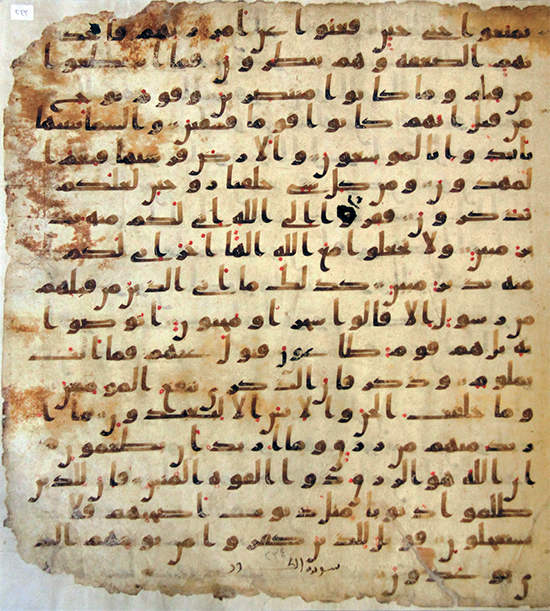 ٢٣٤
تمتعوا حتى حين فعتوا عن امر ربهم فاخذ
تهم الصعقه وهم ينظرون فما استطعوا
من قيم وما كانوا منتصرين وقوم نوح
من قبل انهم كانوا قوما فسقين والسما بنينها
بايد وانا لموسعون والارض فرشنها فنعم ا
لمهدون ومن كل شى خلقنا زوجين لعلكم
تذكرون ففروا الى الله انى لكم منه نذ
ير مبين ولا تجعلوا مع الله الها اخر انى لكم
منه نذير مبين كذلك ما اتى الذين من قبلهم
من رسول الا قالوا سحر او مجنون اتوصوا
به بل هم قوم طاعون فتول عنهم فما انت
بملوم وذكر فان الذكرى تنفع المومنين
وما خلقت الجن والانس الا ليعبدون ما ا
ريد منهم من رزق وما اريد ان يطعمون
ان الله هو الرزق ذوا القوه المتين فان للذين
ظلموا ذنوبا مثل ذنوب اصحبهم فلا
يستعجلون فويل للذين كفروا من يومهم الذ
ى يوعدون
٢٣٤
سوره الطور